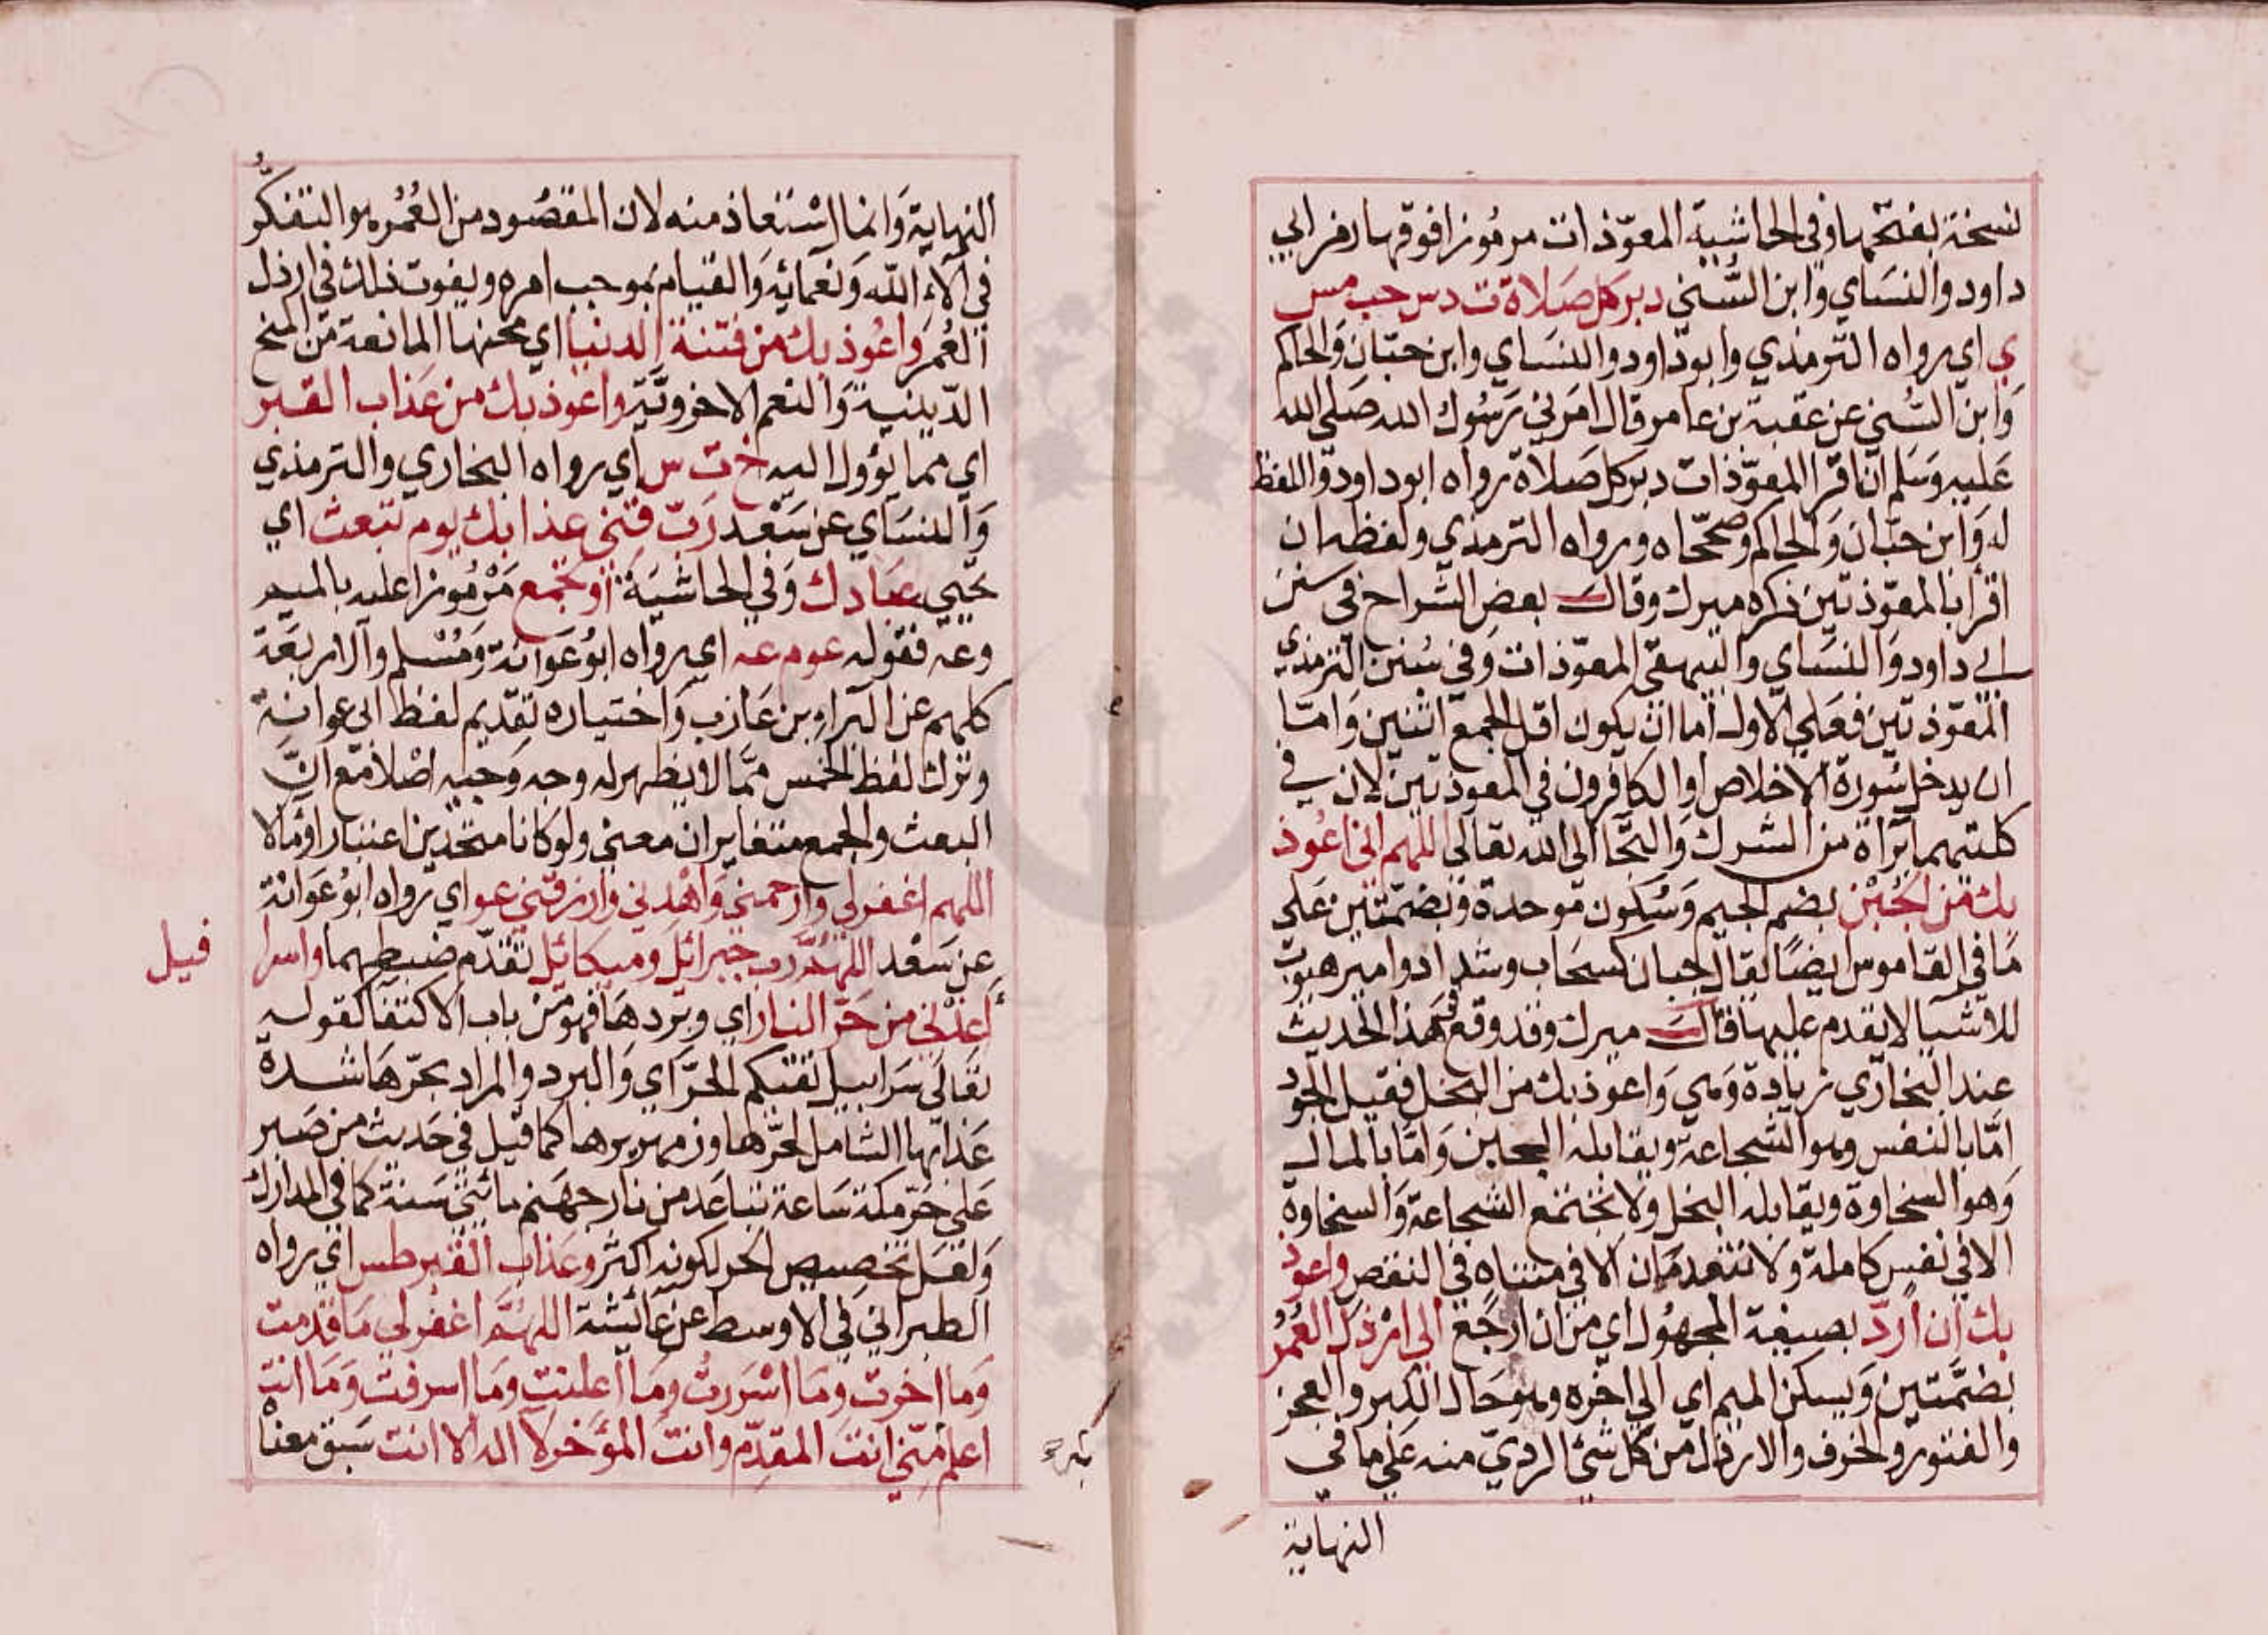 نسخة بفتحها وفي الحاشية المعوّذات مرموزا فوقها رمز ابي
داود والنساي وابن السني دبر كل صلاة ت د س حب مس
ي اي رواه الترمذي وابو داود والنساي وابن حبان والحاكم
وابن السني عن عقبة بن عامر قال امرني رسول الله صلى الله
عليه وسلم ان اقرا المعوّذات دبر كل صلاة رواه ابو داود واللفظ
له وابن حبان والحاكم وصححاه ورواه الترمذي ولفظه ان
اقرا بالمعوّذتين ذكره ميرك وقال بعض الشراح في سنن
ابي داود والنساي والبيهقي المعوّذات وفي سنن الترمذي
المعوّذتين فعلي الاول اما ان يكون اقل الجمع اثنين واما
ان يدخل سورة الاخلاص او الكافرون في المعوذتين لان في
كلتيهما براة من الشرك والتجا الى الله تعالي اللهم اني اعوذ
بك من الجبن بضم الجيم وسكون موحدة وبضمتين على
ما في القاموس ايضا يقال جبان كسحاب وشداد وامير هيوب
للاشيا لا يقدم عليها قال ميرك وقد وقع في هذا الحديث
عند البخاري زيادة وهي واعوذ بك من البخل فقيل الجود
امّا بالنفس وهو الشجاعة ويقابله الجبن وامّا بالمال
وهو السخاوة ويقابله البخل ولا تجتمع الشجاعة والسخاوة
الا في نفس كاملة ولا تنعدمان الا في متناه في النقص واعوذ
بك ان اردّ بصيغة المجهول اي من ان ارجع الى ارذل العُمُر
بضمتين ويسكن الميم اي الي اخره وهو حال الكبر والعجز
والفتور والخرف والارذل من كل شئ الرديّ منه علي ما في
النهاية
النهاية وانما استعاذ منه لان المقصود من العُمُر هو التفكّر
في آلاء الله ونعمائه والقيام بموجب امره ويفوت ذلك في ارذل
العُمر واعوذ بك من فتنة الدنيا اي محنها المانعة من المنح
الدينية والنعم الاخروية واعوذ بك من عذاب القبر
اي مما يؤول اليه خ ت س اي رواه البخاري والترمذي
والنساي عن سعد رب قني عذابك يوم تبعث اي
تحيي عبادك وفي الحاشية أو تجمع مرموزا عليه بالميم
وعه فقوله عو م عه اي رواه ابو عوانة ومسلم والاربعة
كلهم عن البراء بن عازب واختياره تقديم لفظ ابي عوانة
وترك لفظ الخمس ممّا لا يظهر له وجه وجيه اصلا مع انّ
البعث والجمع متغايران معني ولو كانا متحدين اعتبارا ومالا
اللهم اغفر لي وارحمني واهدني وارزقني عو اي رواه ابو عوانة
عن سعد اللهمّ رب جبرائل وميكائل تقدّم ضبطهما واسرا
فيل
أعذني من حرّ النار اي وبردها فهو من باب الاكتفا كقوله
تعالى سرابيل تقيكم الحرّ اي والبرد والمراد بحرّها شدة
عذابها الشامل لحرّها وزمهريرها كما قيل في حديث من صبر
على حر مكة ساعة تباعد من نار جهنم مائتي سنة كما في المدارك
ولعل تخصيص الحر لكونه اكثر وعذاب القبر طس اي رواه
الطبراني في الاوسط عن عائشة اللهمّ اغفر لي ما قدمت
وما اخرت وما اسررت وما اعلنت وما اسرفت وما انت
اعلم منّي انت المقدّم وانت المؤخر لا اله الا انت سبق معنا